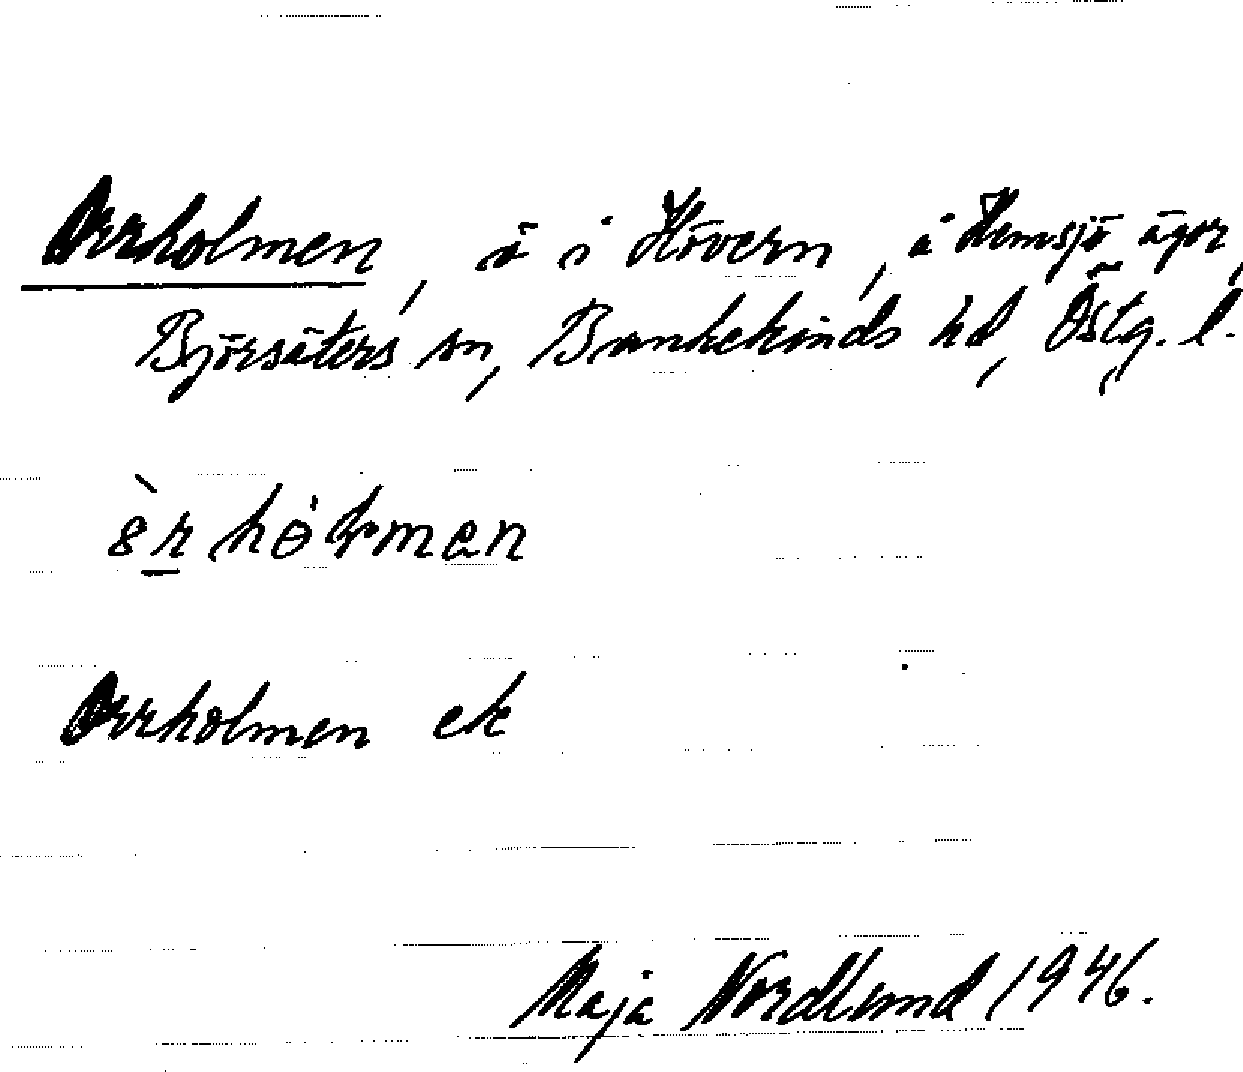 Orrholmen, ö i Hövern, å Hemsjö ägor,
Björsäters sn, Bankekinds hd, Östg. l.
Orrholmen ek
Maja Nordlund 1946.